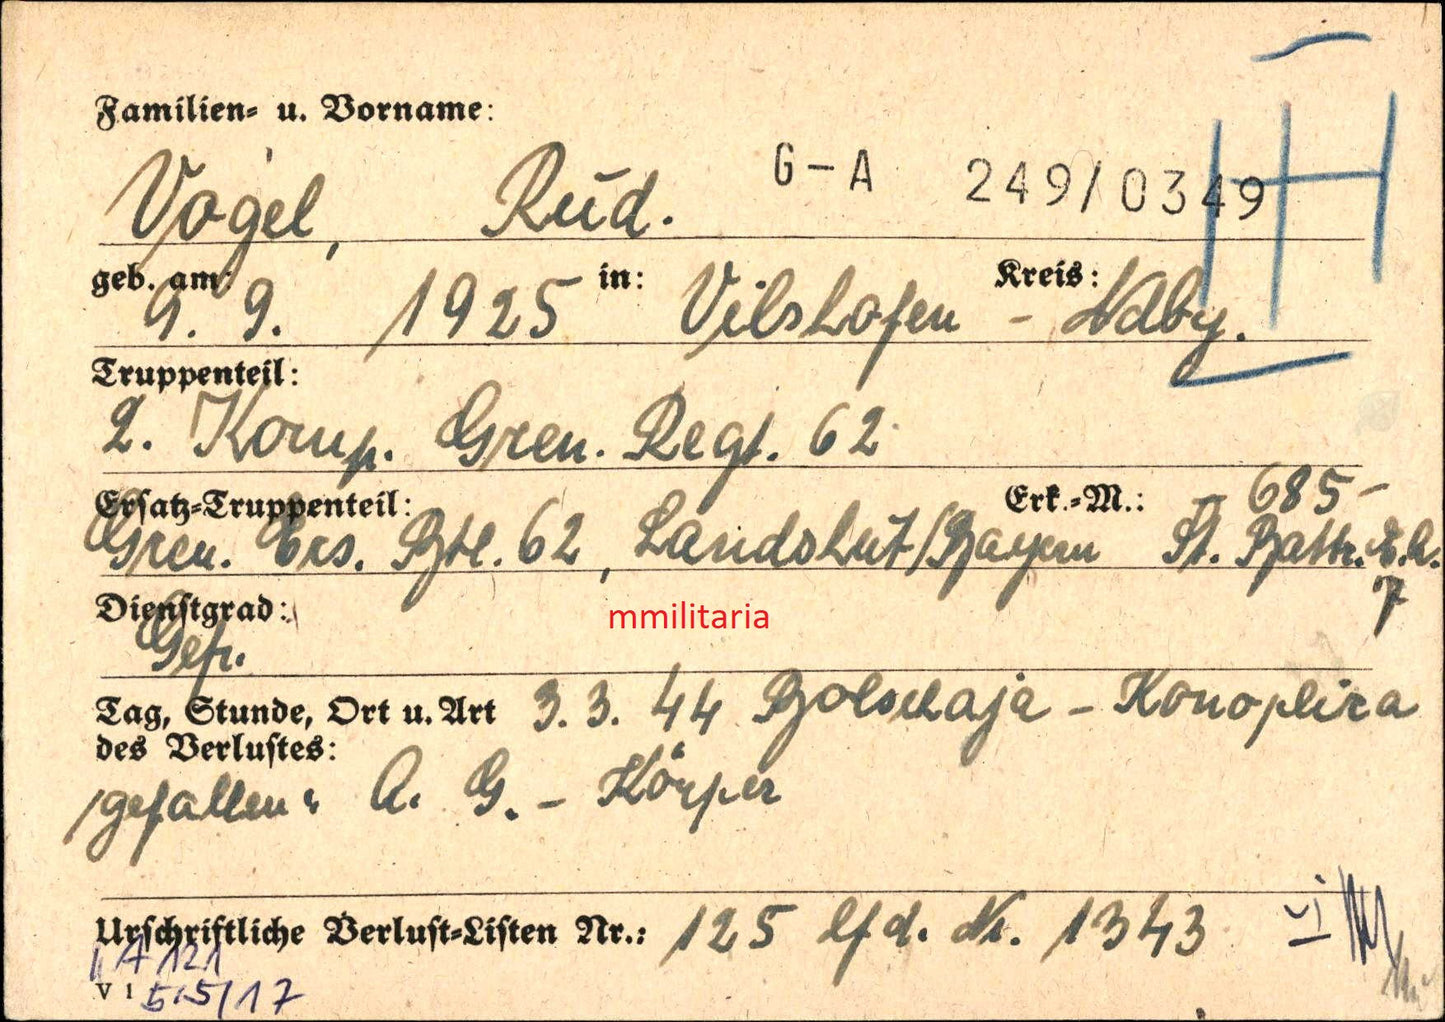 Familien- u. Vorname:
Vogel, Rud. G-A 249/0349 H
geb. am: 9. 9. 1925 in: Vilshofen - Kreis: Ndby.
Truppenteil:
2. Komp. Gren. Regt. 62
Ersatz-Truppenteil: Erk.-M.: - 685 -
Gren. Ers. Btl. 62, Landshut/Bayern St. Battr. A.
7
Dienstgrad:
mmilitaria
Gefr.
Tag, Stunde, Ort u. Art 3. 3. 44 Bolschaja - Konoplira
des Verlustes:
gefallen: A. G. - Körper
Urschriftliche Verlust-Listen Nr.: 125 lfd. Nr. 1343
A 121
V 1 515/17